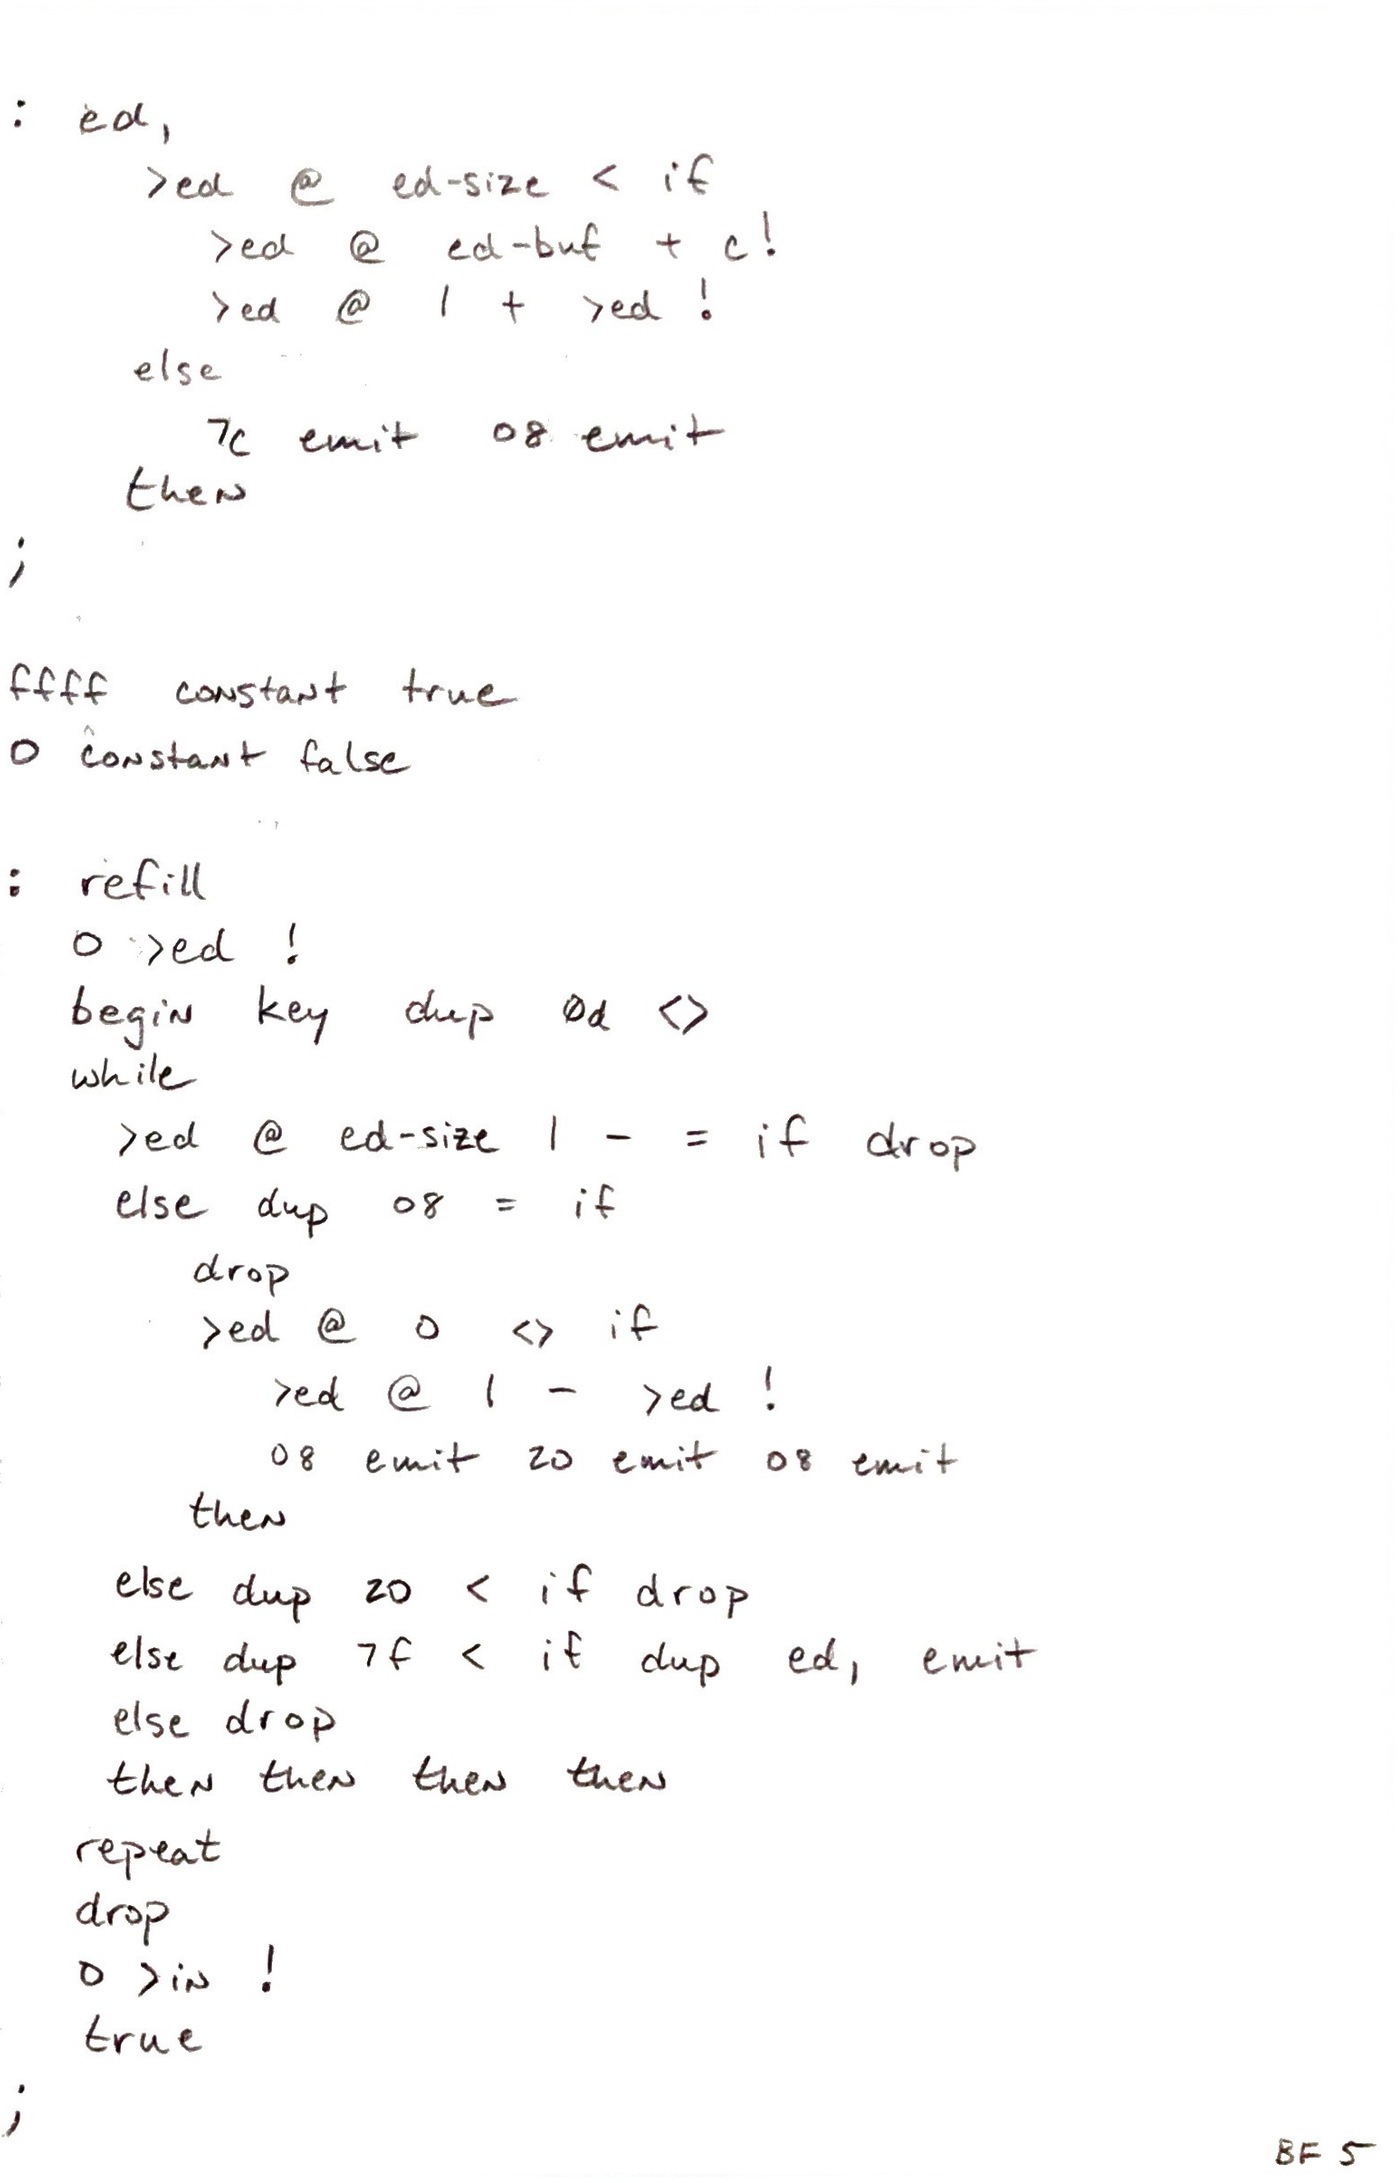 : ed,
>ed @ ed-size < if
>ed @ ed-buf + c!
>ed @ 1 + >ed !
else
7c emit 08 emit
then
;
ffff constant true
0 constant false
: refill
0 >ed !
begin key dup 0d <>
while
>ed @ ed-size 1 - = if drop
else dup 08 = if
drop
>ed @ 0 <> if
>ed @ 1 - >ed !
08 emit 20 emit 08 emit
then
else dup 20 < if drop
else dup 7f < if dup ed, emit
else drop
then then then then
repeat
drop
0 >in !
true
;
BF 5